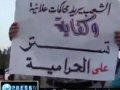 الشعب يريد محاكمات علانية
وكفاية
تستر
على الحرامية